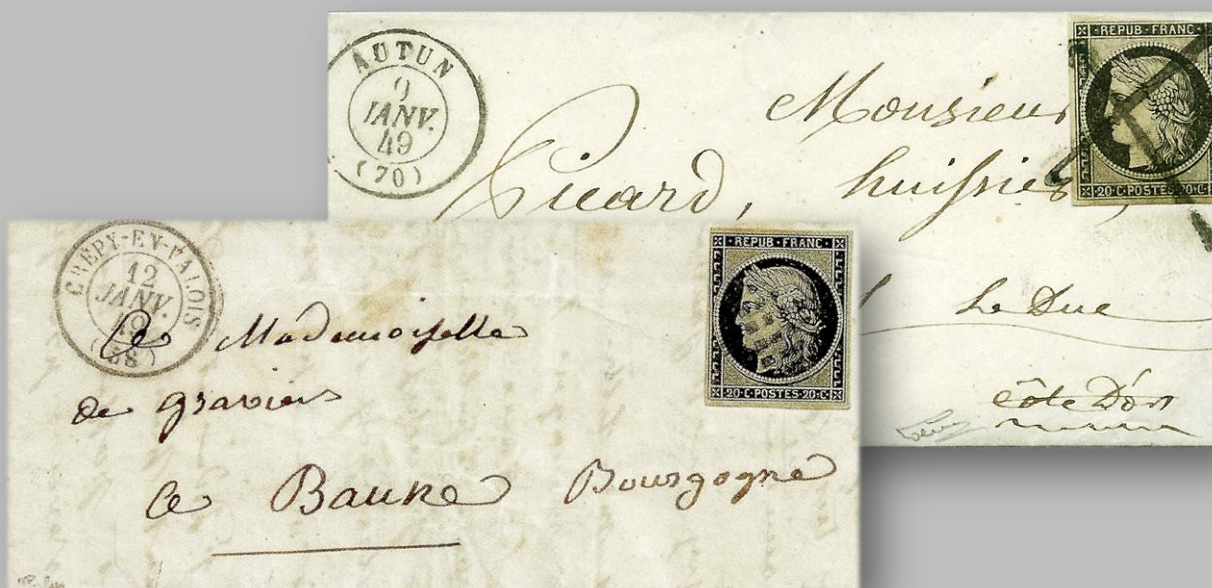 AUTUN
9
JANV.
49
(70)
REPUB·FRANC·
20·C·POSTES·20·C·
Monsieur
Picard, huissier,
le Duc
côte D'or
CRÉPY-EN-VALOIS
12
JANV.
49
REPUB·FRANC·
20·C·POSTES·20·C·
Mademoiselle
de graviers
Baune Bourgogne